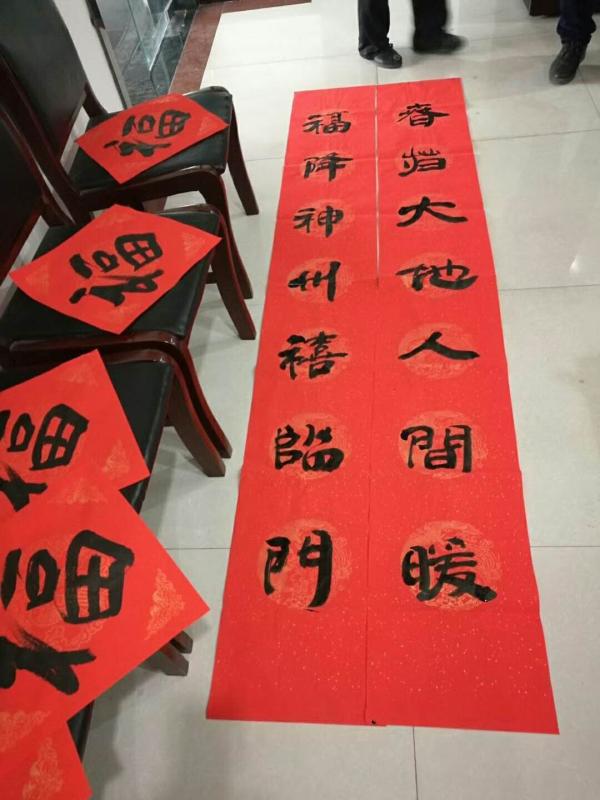 春归大地人間暖
福降神州禧臨門
福
福
福
福